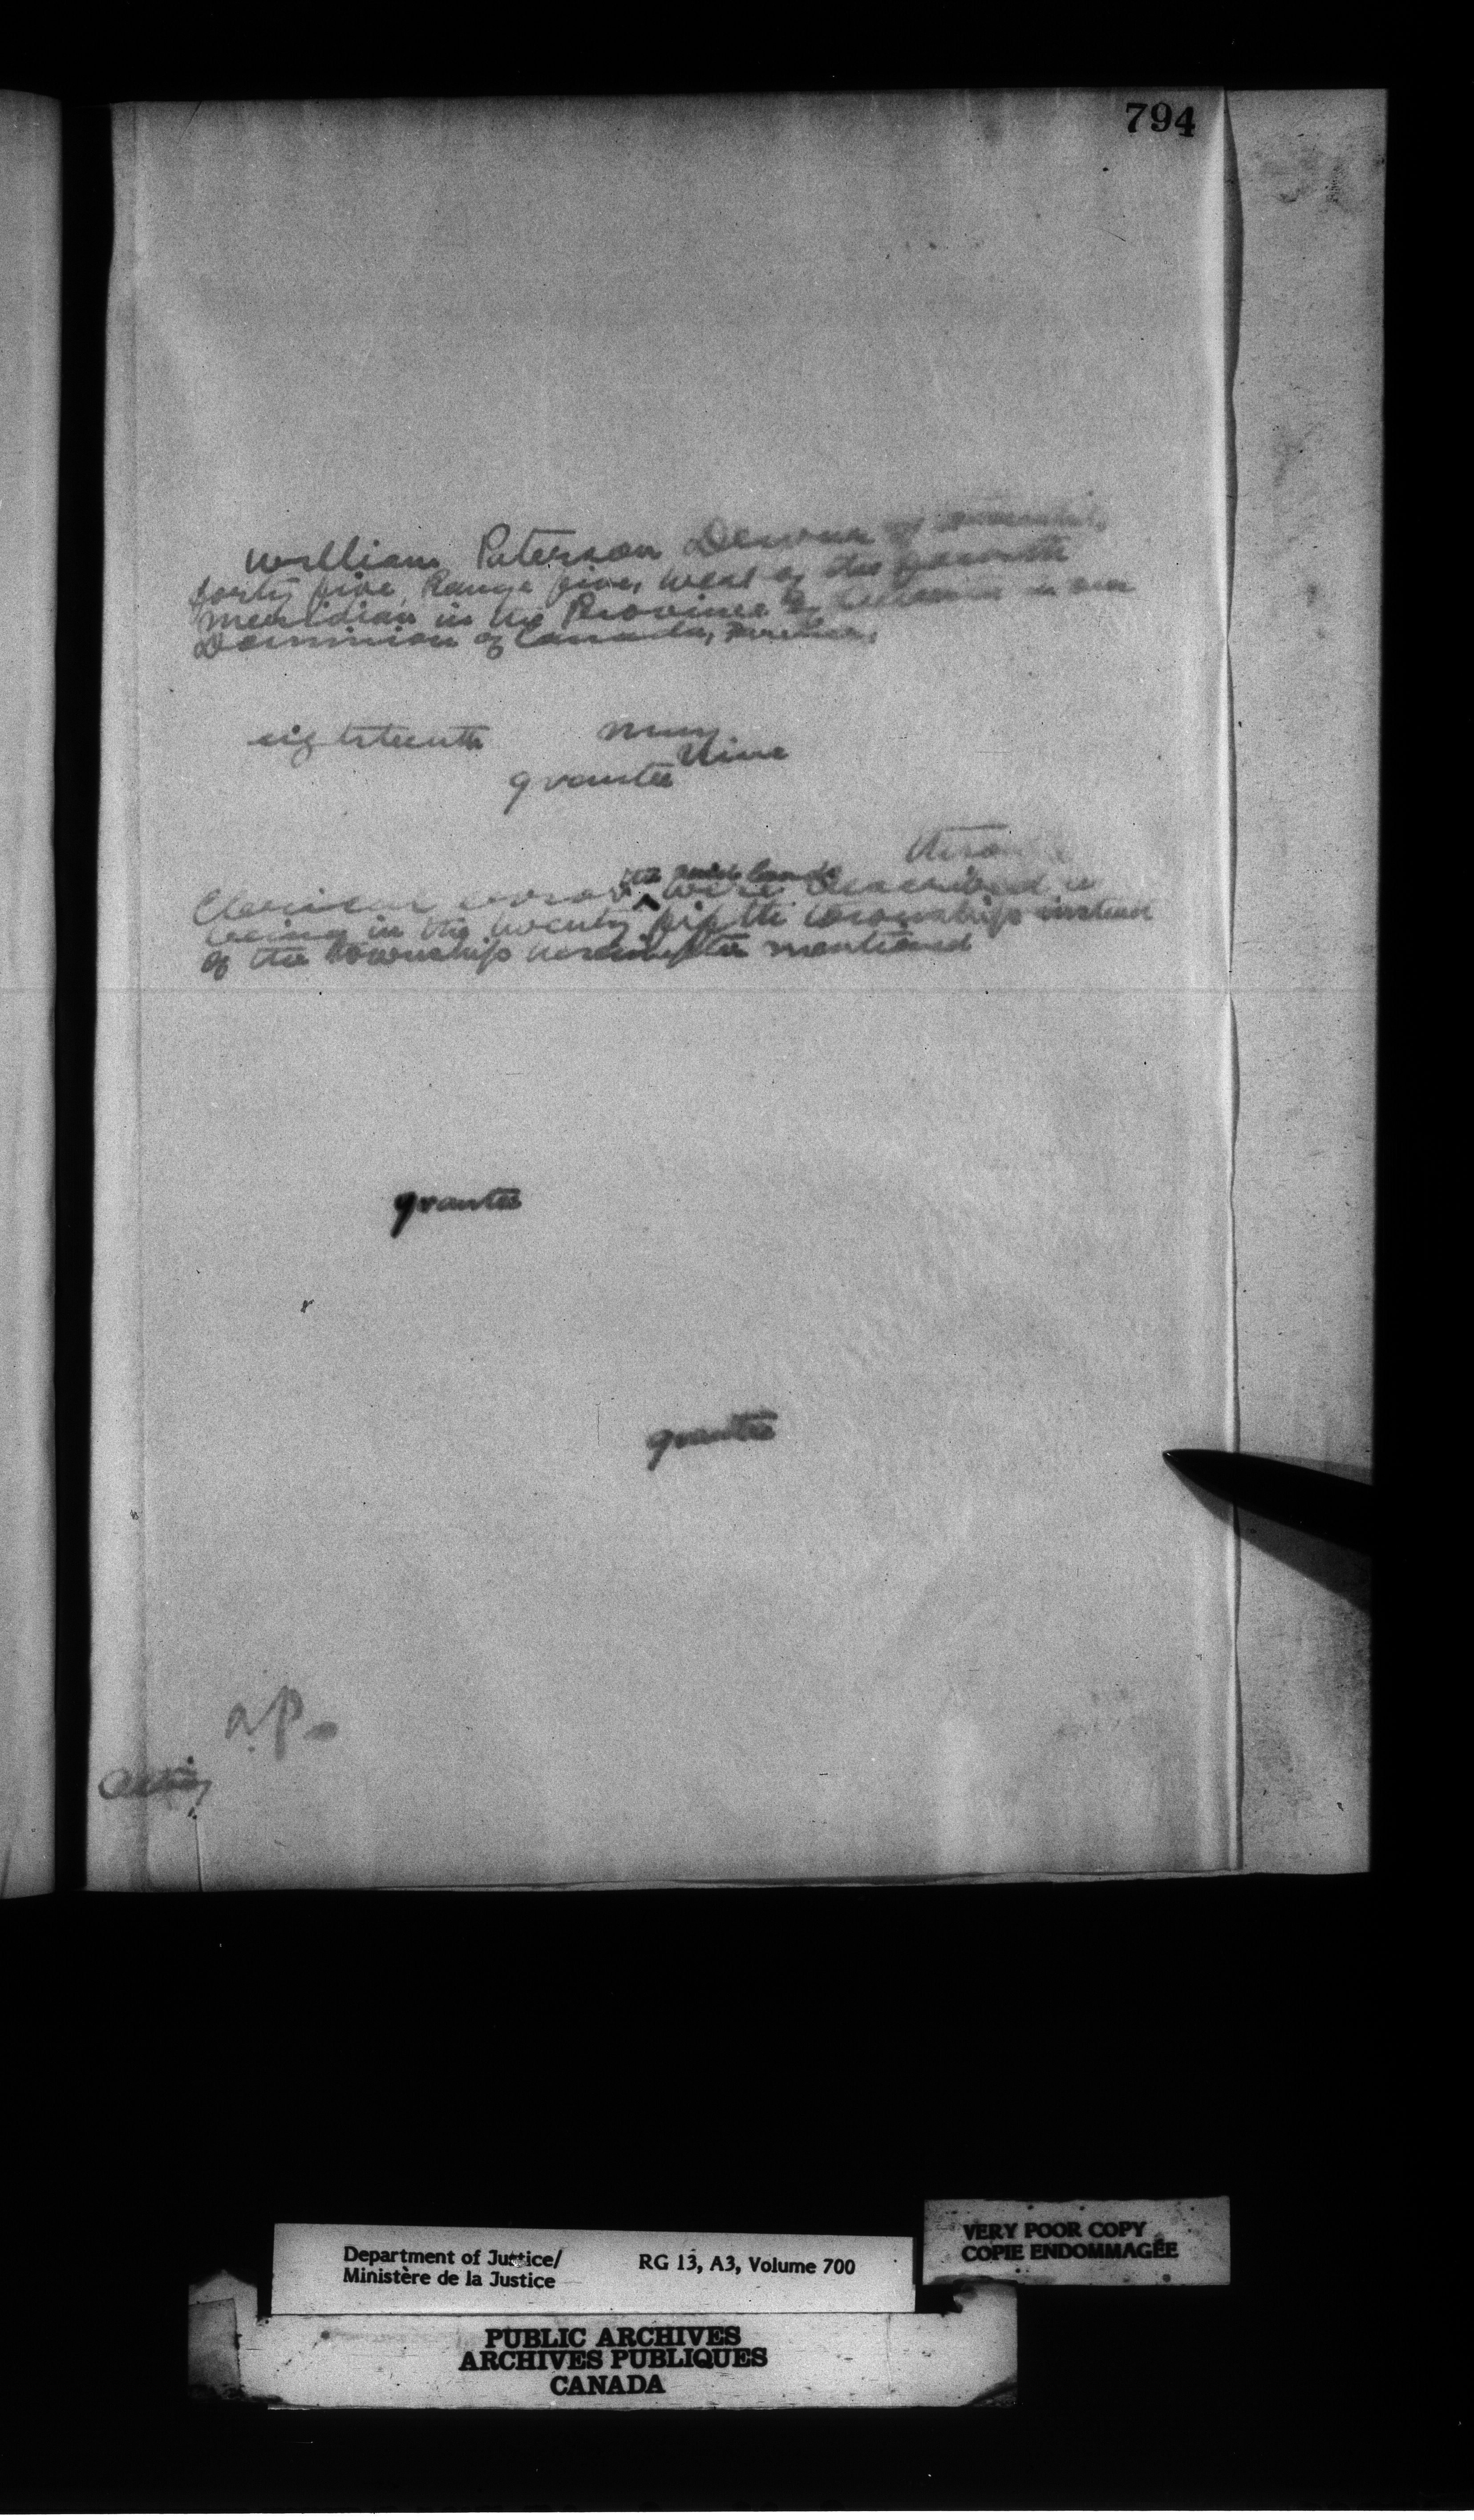 794
William Paterson of
forty five, Range five, west of the fourth
meridian in the Province of Alberta in our
Dominion of Canada,
eighteenth May
nine
grantee
the said lands
Clerical error ‸ were described as
being in the twenty fifth township instead
of the township hereinafter mentioned
grantee
grantee
a.p.
Acting
VERY POOR COPY
COPIE ENDOMMAGÉE
Department of Justice/ RG 13, A3, Volume 700
Ministère de la Justice
PUBLIC ARCHIVES
ARCHIVES PUBLIQUES
CANADA